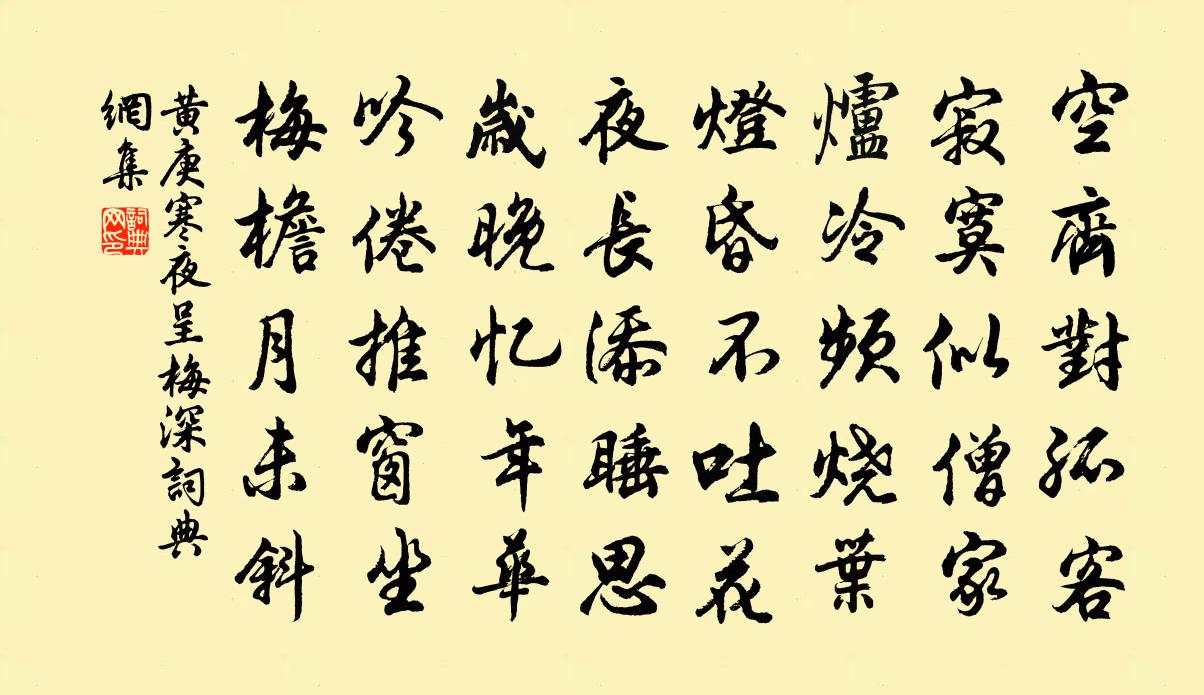 空齊對孤客
寂寞似僧家
爐冷頻烧葉
燈昏不吐花
夜長添睡思
歲晚忆年華
吟倦推窗坐
梅檐月未斜
黄庚寒夜呈梅深詞典
網集
詞典网印